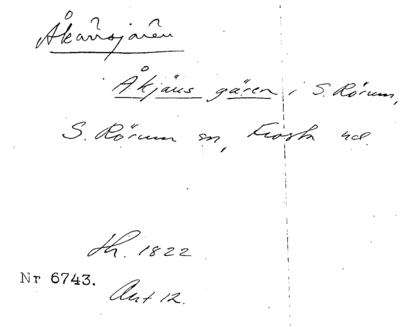 Åkärrsjären
Åkjäus gären i S. Rörum,
S. Rörum sn, Frosta hd.
th. 1822
Nr 6743.
Akt 12.